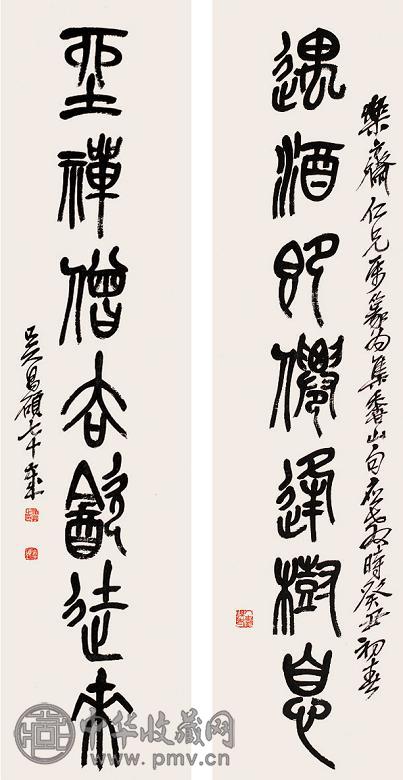 樂齋仁兄屬篆為集香山句應教時癸丑初春
遇酒即僊逢樹息
坐禪僧去飲徒來
吳昌碩七十歲
中华收藏网
www.pmv.cn